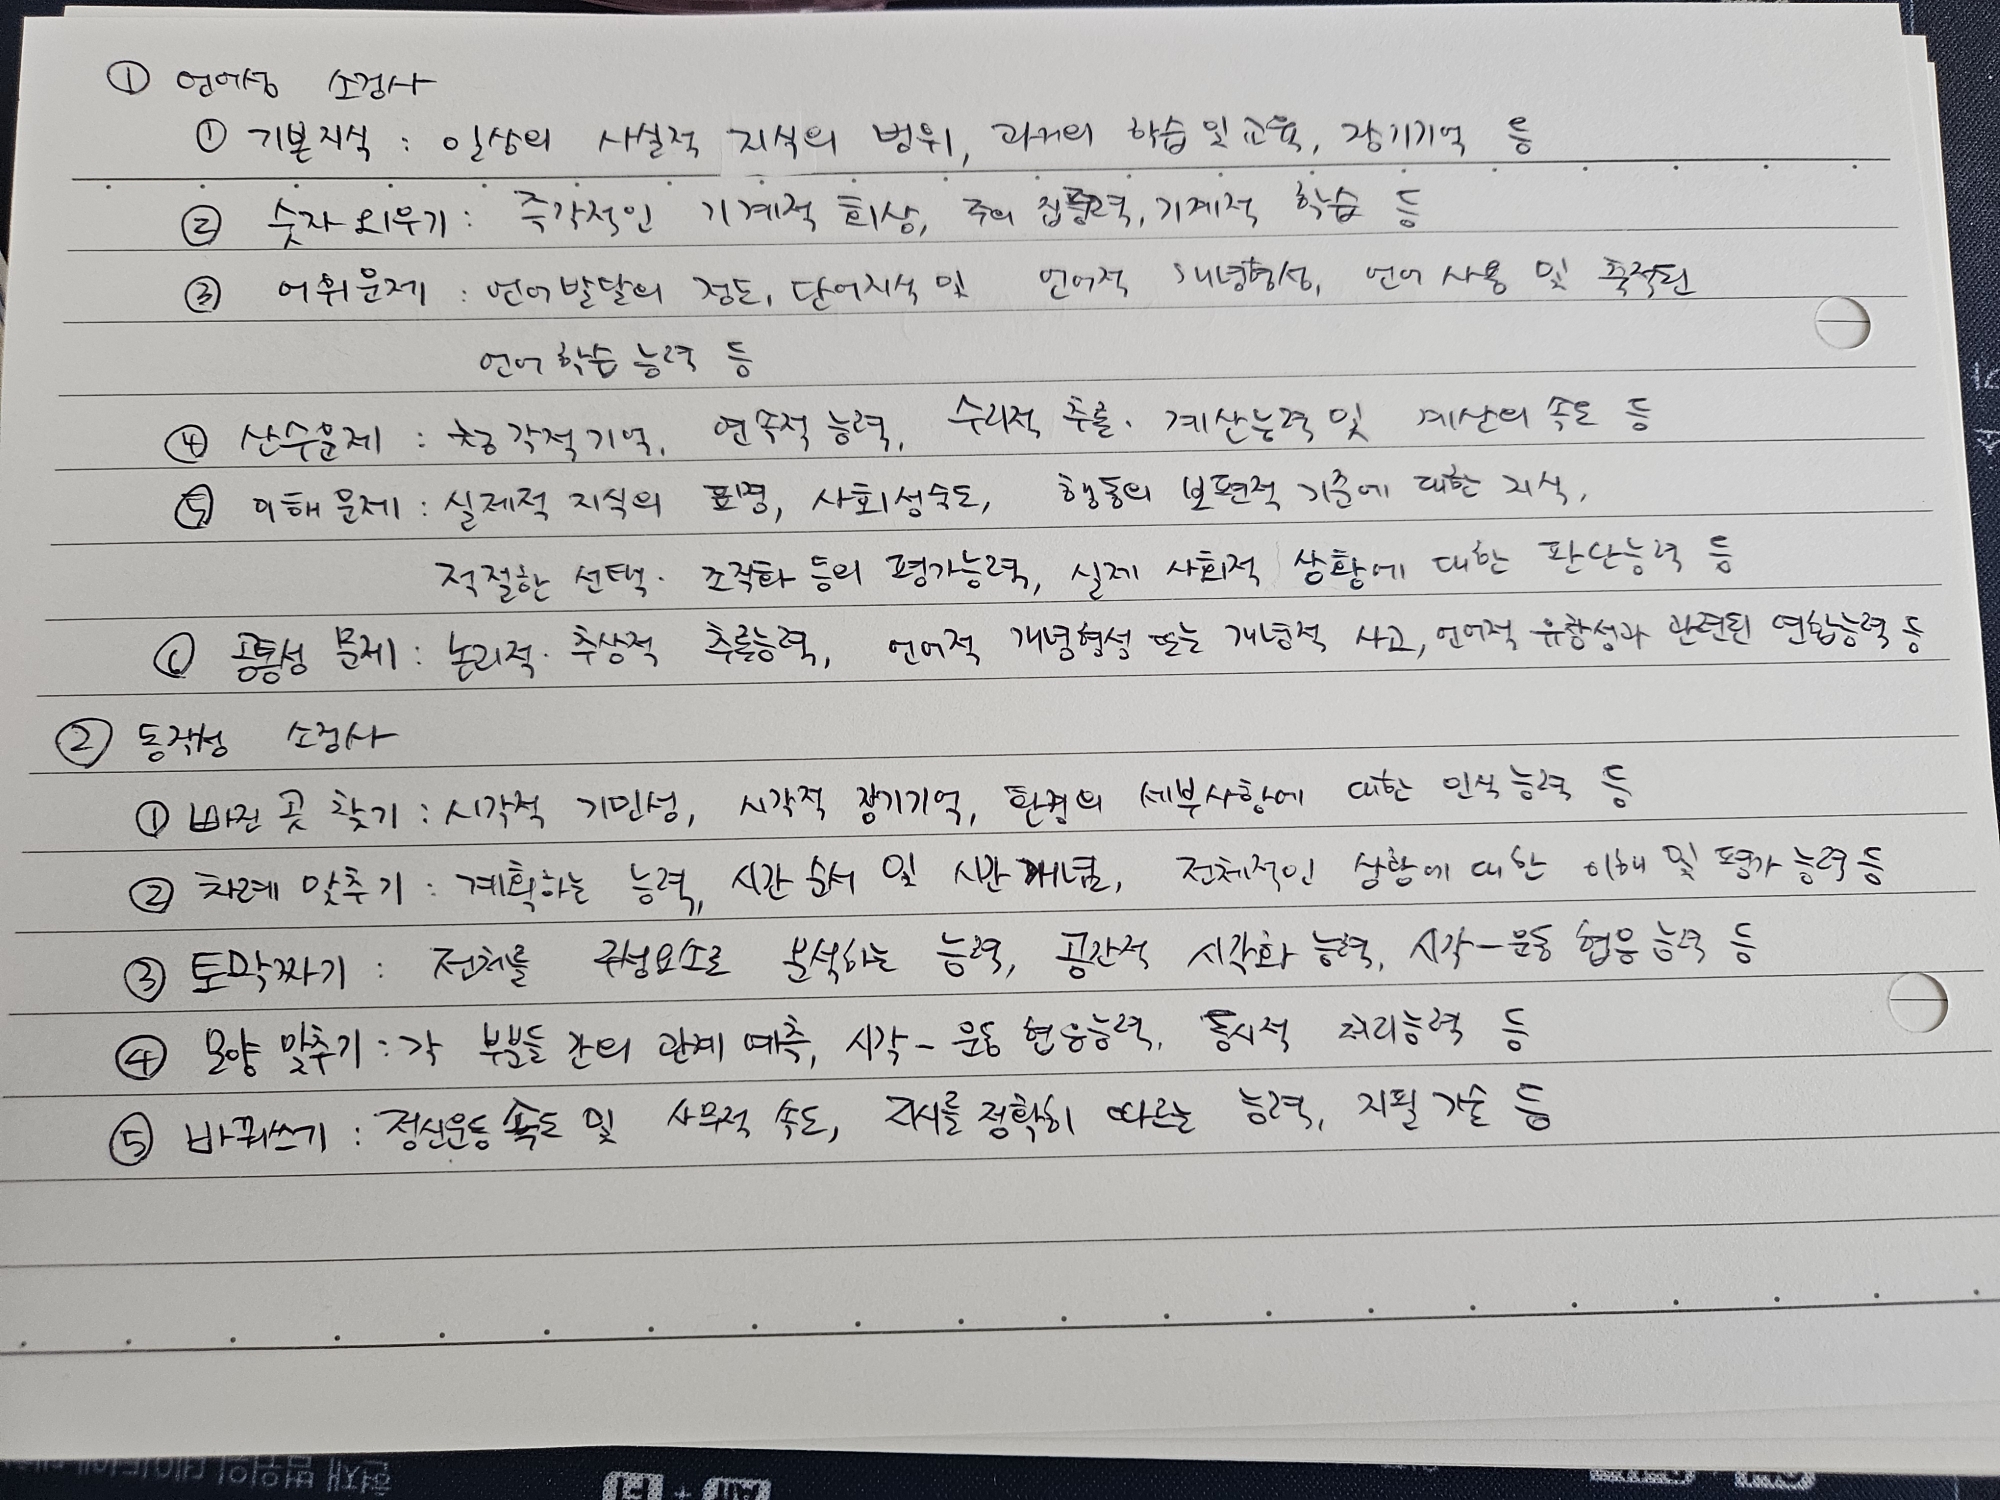 ① 언어성 소검사
① 기본지식 : 일상의 사실적 지식의 범위, 과거의 학습 및 교육, 장기기억 등
② 숫자 외우기 : 즉각적인 기계적 회상, 주의 집중력, 기계적 학습 등
③ 어휘문제 : 언어발달의 정도, 단어지식 및 언어적 개념형성, 언어 사용 및 축적된
언어 학습 능력 등
④ 산수문제 : 청각적 기억, 연속적 능력, 수리적 추론·계산능력 및 계산의 속도 등
⑤ 이해 문제 : 실제적 지식의 표명, 사회성숙도, 행동의 보편적 기준에 대한 지식,
적절한 선택·조직화 등의 평가능력, 실제 사회적 상황에 대한 판단능력 등
⑥ 공통성 문제 : 논리적·추상적 추론능력, 언어적 개념형성 또는 개념적 사고, 언어적 유창성과 관련된 연합능력 등
② 동작성 소검사
① 빠진 곳 찾기 : 시각적 기민성, 시각적 장기기억, 환경의 세부사항에 대한 인식 능력 등
② 차례 맞추기 : 계획하는 능력, 시간 순서 및 시간 개념, 전체적인 상황에 대한 이해 및 평가 능력 등
③ 토막짜기 : 전체를 구성요소로 분석하는 능력, 공간적 시각화 능력, 시각-운동 협응 능력 등
④ 모양 맞추기 : 각 부분들 간의 관계 예측, 시각-운동 협응능력, 동시적 처리능력 등
⑤ 바꿔쓰기 : 정신운동 속도 및 사무적 속도, 지시를 정확히 따르는 능력, 지필 기술 등